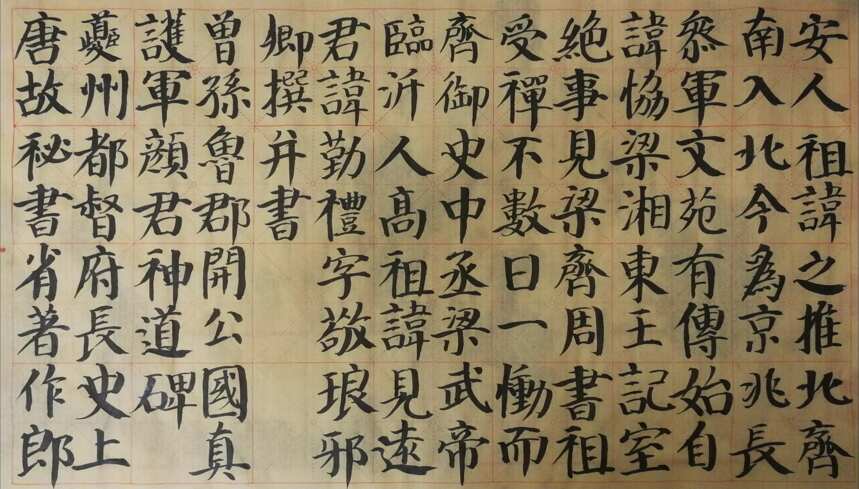 唐故秘書省著作郎
夔州都督府長史上
護軍顏君神道碑
曾孫魯郡開公國真
卿撰并書
君諱勤禮字敬琅邪
臨沂人高祖諱見遠
齊御史中丞梁武帝
受禪不數日一慟而
絕事見梁齊周書祖
諱恊梁湘東王記室
叅軍文苑有傳始自
南入北今爲京兆長
安人祖諱之推北齊